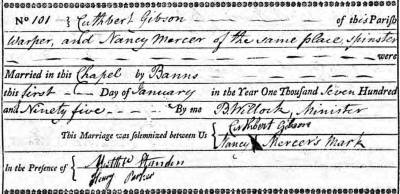 No 101 Cuthbert Gibson of this Parish
Warper, and Nancy Mercer of the same place, Spinster
were
Married in this Chapel by Banns
this first Day of January in the Year One Thousand Seven Hundred
and Ninety five By me B. Wilcock, Minister
This Marriage was solemnized between Us Cuthbert Gibson
Nancy X Mercer's Mark
In the Presence of
Henry Parker